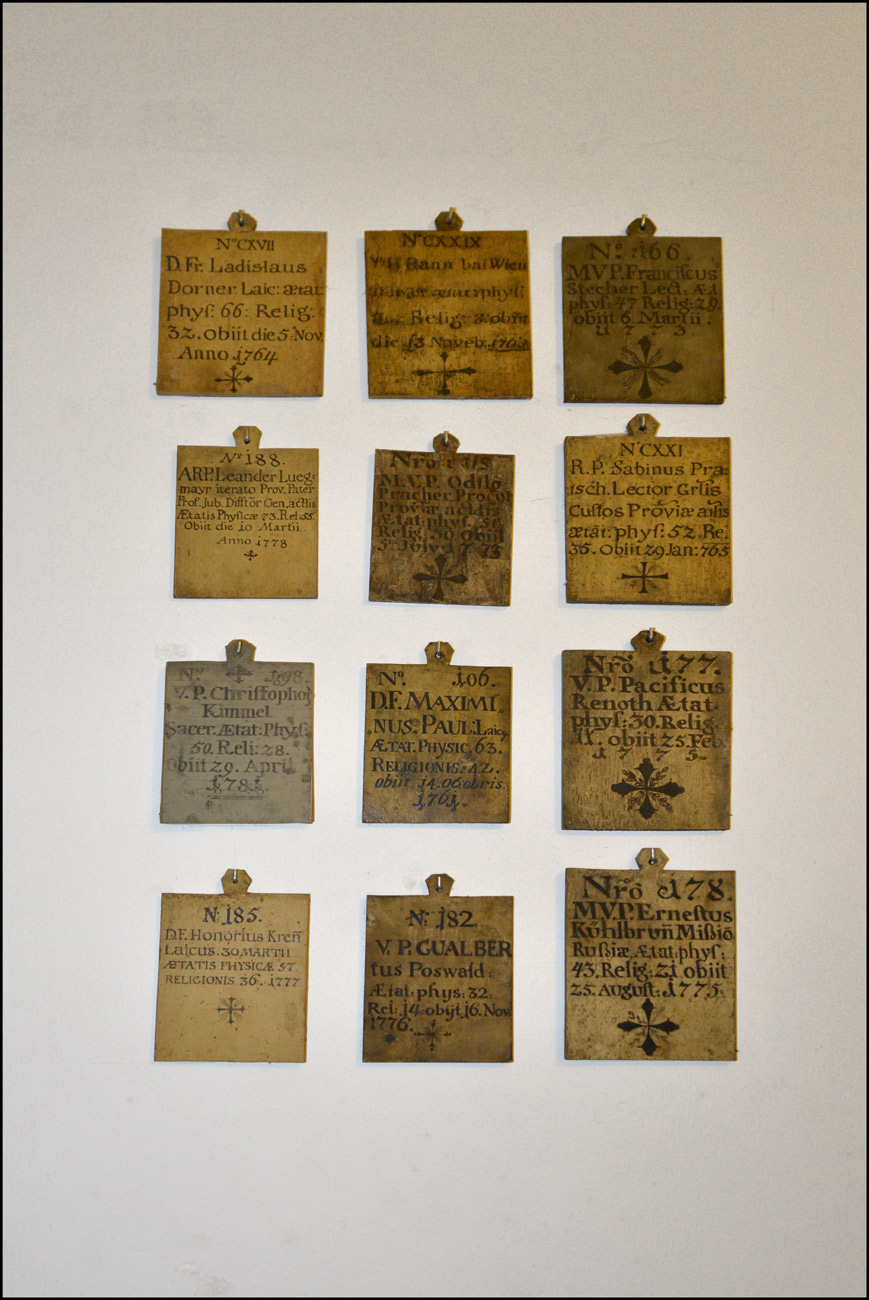 Nº CXVII
D. Fr. Ladislaus
Dorner Laic: ætat:
phyſ: 66: Relig:
32. obiit die 5. Nov.
Anno 1764
Nº CXXIX
Rann bai Wien
ætat: phyſ:
Relig: obiit
die 13 Noveb: 1763.
Nº. 166.
MVP. Franciſcus
Stecher Lect. Æt.
phyſ: 47 Relig: 29.
obiit 6. Martii.
1773.
Nº 188.
ARP. Leander Lueg=
mayr iterato Prov. Pater
Prof. Jub. Diffitōr Gen. actlis
Ætatis Phyſicæ 73. Rel: 55.
Obiit die 10 Martii
Anno 1778
M.V.P. Odilo
Pracher Procur
Proviæ actlis
Ætat: phyſ:
Relig: 30 obiit
5. July 1775
Nº CXXI
R. P. Sabinus Pra=
tsch. Lector Grlis
Cuſtos Proviæ
ætāt: phyſ: 52. Re.
35. obiit 29 Jan: 765
Nº. 198.
V. P. Chriſtophor
Kimmel
Sacer. Ætat: Phyſ:
50. Reli: 28.
Obiit 29. April
1781.
Nº. 106.
D. F. MAXIMI„
„NUS. PAUL. Laic,
ÆTAT. PHYSIC. 63.
RELIGIONIS: 42.
obiit 14. Octobris.
1761.
Nrō 177.
V. P. Pacificus
Renoth Ætat.
phyſ: 30. Relig.
11. obiit 25. Feb.
1775.
N: 185.
D. F. Honorius Kren̄
Laicus. 30 MARTII
ÆTATIS PHYSICÆ 57.
RELIGIONIS 36. 1777
N: 182.
V. P. GUALBER
tus Poswald:
Ætat: phys: 32.
Rel: 14. obijt 16. Nov
1776.
Nrō 178.
M.V.P. Erneſtus
Kűhlbrun̄ Mißiō
Rußiæ Ætat: phyſ:
43. Relig: 21 obiit
25. August: 1775.